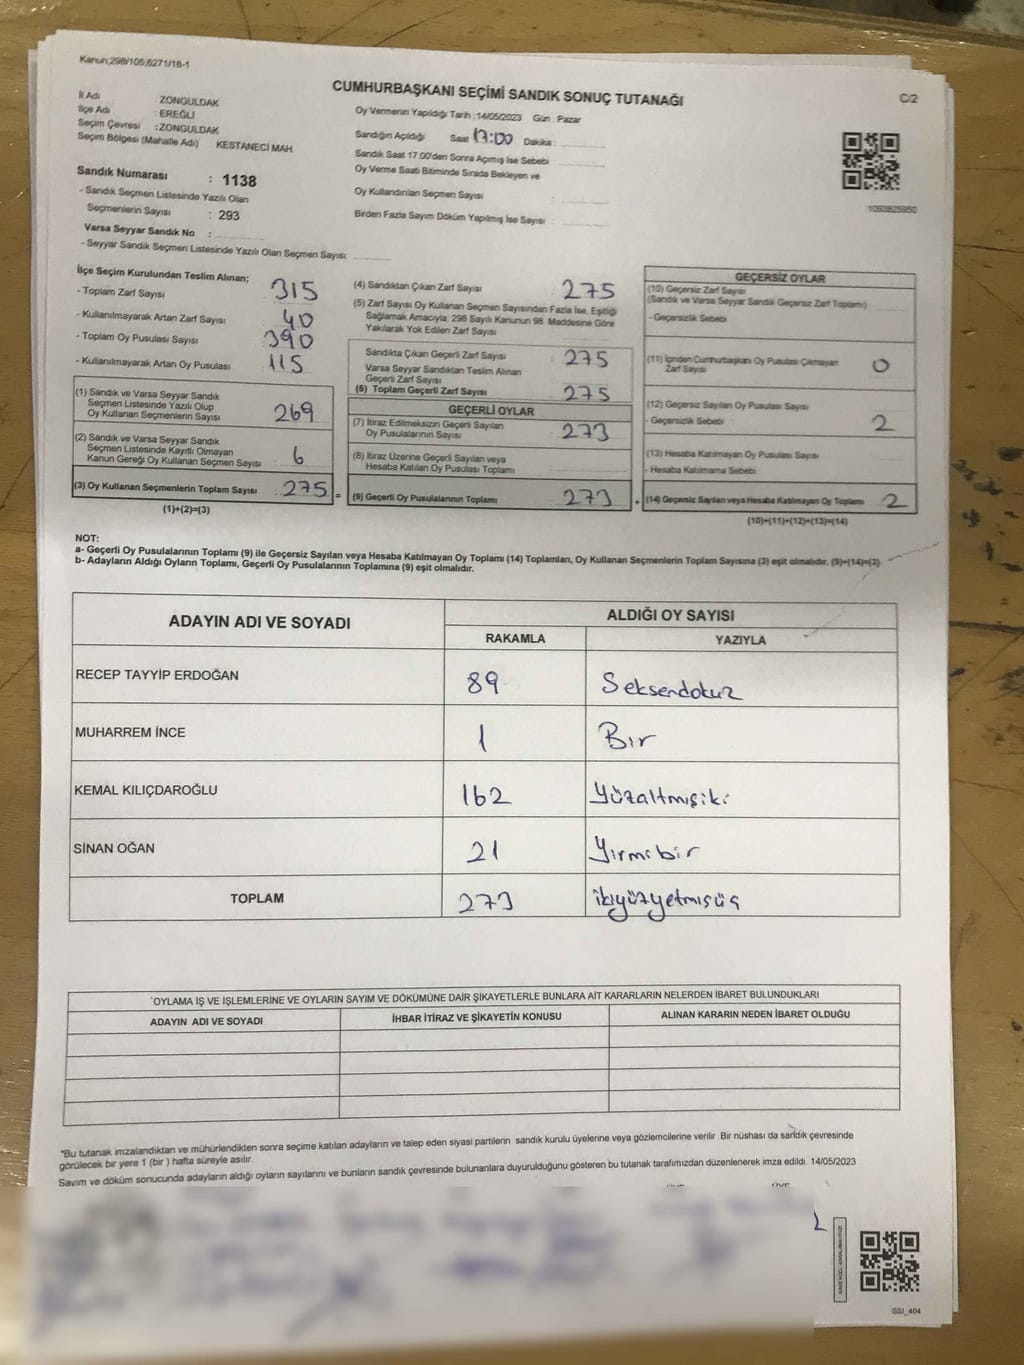 Kanun;298/105,6271/18-1
CUMHURBAŞKANI SEÇİMİ SANDIK SONUÇ TUTANAĞI
C/2
İl Adı : ZONGULDAK
İlçe Adı : EREĞLİ
Seçim Çevresi : ZONGULDAK
Seçim Bölgesi (Mahalle Adı) : KESTANECİ MAH.
Sandık Numarası : 1138
- Sandık Seçmen Listesinde Yazılı Olan
Seçmenlerin Sayısı : 293
Varsa Seyyar Sandık No :
- Seyyar Sandık Seçmen Listesinde Yazılı Olan Seçmen Sayısı:
Oy Vermenin Yapıldığı Tarih : 14/05/2023 Gün : Pazar
Sandığın Açıldığı Saat 17:00 Dakika :
Sandık Saat 17.00'den Sonra Açımış İse Sebebi
Oy Verme Saati Bitiminde Sırada Bekleyen ve
Oy Kullandırılan Seçmen Sayısı
Birden Fazla Sayım Döküm Yapılmış İse Sayısı
1093825950
İlçe Seçim Kurulundan Teslim Alınan;
- Toplam Zarf Sayısı : 315
- Kullanılmayarak Artan Zarf Sayısı : 40
- Toplam Oy Pusulası Sayısı : 390
- Kullanılmayarak Artan Oy Pusulası : 115
(1) Sandık ve Varsa Seyyar Sandık
Seçmen Listesinde Yazılı Olup
Oy Kullanan Seçmenlerin Sayısı : 269
(2) Sandık ve Varsa Seyyar Sandık
Seçmen Listesinde Kayıtlı Olmayan
Kanun Gereği Oy Kullanan Seçmen Sayısı : 6
(3) Oy Kullanan Seçmenlerin Toplam Sayısı : 275 =
(1)+(2)=(3)
(4) Sandıktan Çıkan Zarf Sayısı : 275
(5) Zarf Sayısı Oy Kullanan Seçmen Sayısından Fazla İse, Eşitliği
Sağlamak Amacıyla, 298 Sayılı Kanunun 98. Maddesine Göre
Yakılarak Yok Edilen Zarf Sayısı
Sandıkta Çıkan Geçerli Zarf Sayısı : 275
Varsa Seyyar Sandıktan Teslim Alınan
Geçerli Zarf Sayısı
(6) Toplam Geçerli Zarf Sayısı : 275
GEÇERLİ OYLAR
(7) İtiraz Edilmeksizin Geçerli Sayılan
Oy Pusulalarının Sayısı : 273
(8) İtiraz Üzerine Geçerli Sayılan veya
Hesaba Katılan Oy Pusulası Toplamı
(9) Geçerli Oy Pusulalarının Toplamı : 273 +
GEÇERSİZ OYLAR
(10) Geçersiz Zarf Sayısı
(Sandık ve Varsa Seyyar Sandık Geçersiz Zarf Toplamı)
- Geçersizlik Sebebi
(11) İçinden Cumhurbaşkanı Oy Pusulası Çıkmayan
Zarf Sayısı 0
(12) Geçersiz Sayılan Oy Pusulası Sayısı
- Geçersizlik Sebebi 2
(13) Hesaba Katılmayan Oy Pusulası Sayısı
- Hesaba Katılmama Sebebi
(14) Geçersiz Sayılan veya Hesaba Katılmayan Oy Toplamı 2
(10)+(11)+(12)+(13)=(14)
NOT:
a- Geçerli Oy Pusulalarının Toplamı (9) ile Geçersiz Sayılan veya Hesaba Katılmayan Oy Toplamı (14) Toplamları, Oy Kullanan Seçmenlerin Toplam Sayısına (3) eşit olmalıdır. (9)+(14)=(3)
b- Adayların Aldığı Oyların Toplamı, Geçerli Oy Pusulalarının Toplamına (9) eşit olmalıdır.
ADAYIN ADI VE SOYADI
ALDIĞI OY SAYISI
RAKAMLA YAZIYLA
RECEP TAYYİP ERDOĞAN 89 Seksendokuz
MUHARREM İNCE 1 Bir
KEMAL KILIÇDAROĞLU 162 Yüzaltmışiki
SİNAN OĞAN 21 Yirmibir
TOPLAM 273 ikiyüzyetmişüç
*OYLAMA İŞ VE İŞLEMLERİNE VE OYLARIN SAYIM VE DÖKÜMÜNE DAİR ŞİKAYETLERLE BUNLARA AİT KARARLARIN NELERDEN İBARET BULUNDUKLARI
ADAYIN ADI VE SOYADI İHBAR İTİRAZ VE ŞİKAYETİN KONUSU ALINAN KARARIN NEDEN İBARET OLDUĞU
*Bu tutanak imzalandıktan ve mühürlendikten sonra seçime katılan adayların ve talep eden siyasi partilerin sandık kurulu üyelerine veya gözlemcilerine verilir .Bir nüshası da sandık çevresinde
görülecek bir yere 1 (bir ) hafta süreyle asılır.
Sayım ve döküm sonucunda adayların aldığı oyların sayılarını ve bunların sandık çevresinde bulunanlara duyurulduğunu gösteren bu tutanak tarafımızdan düzenlenerek imza edildi. 14/05/2023
SSI_404